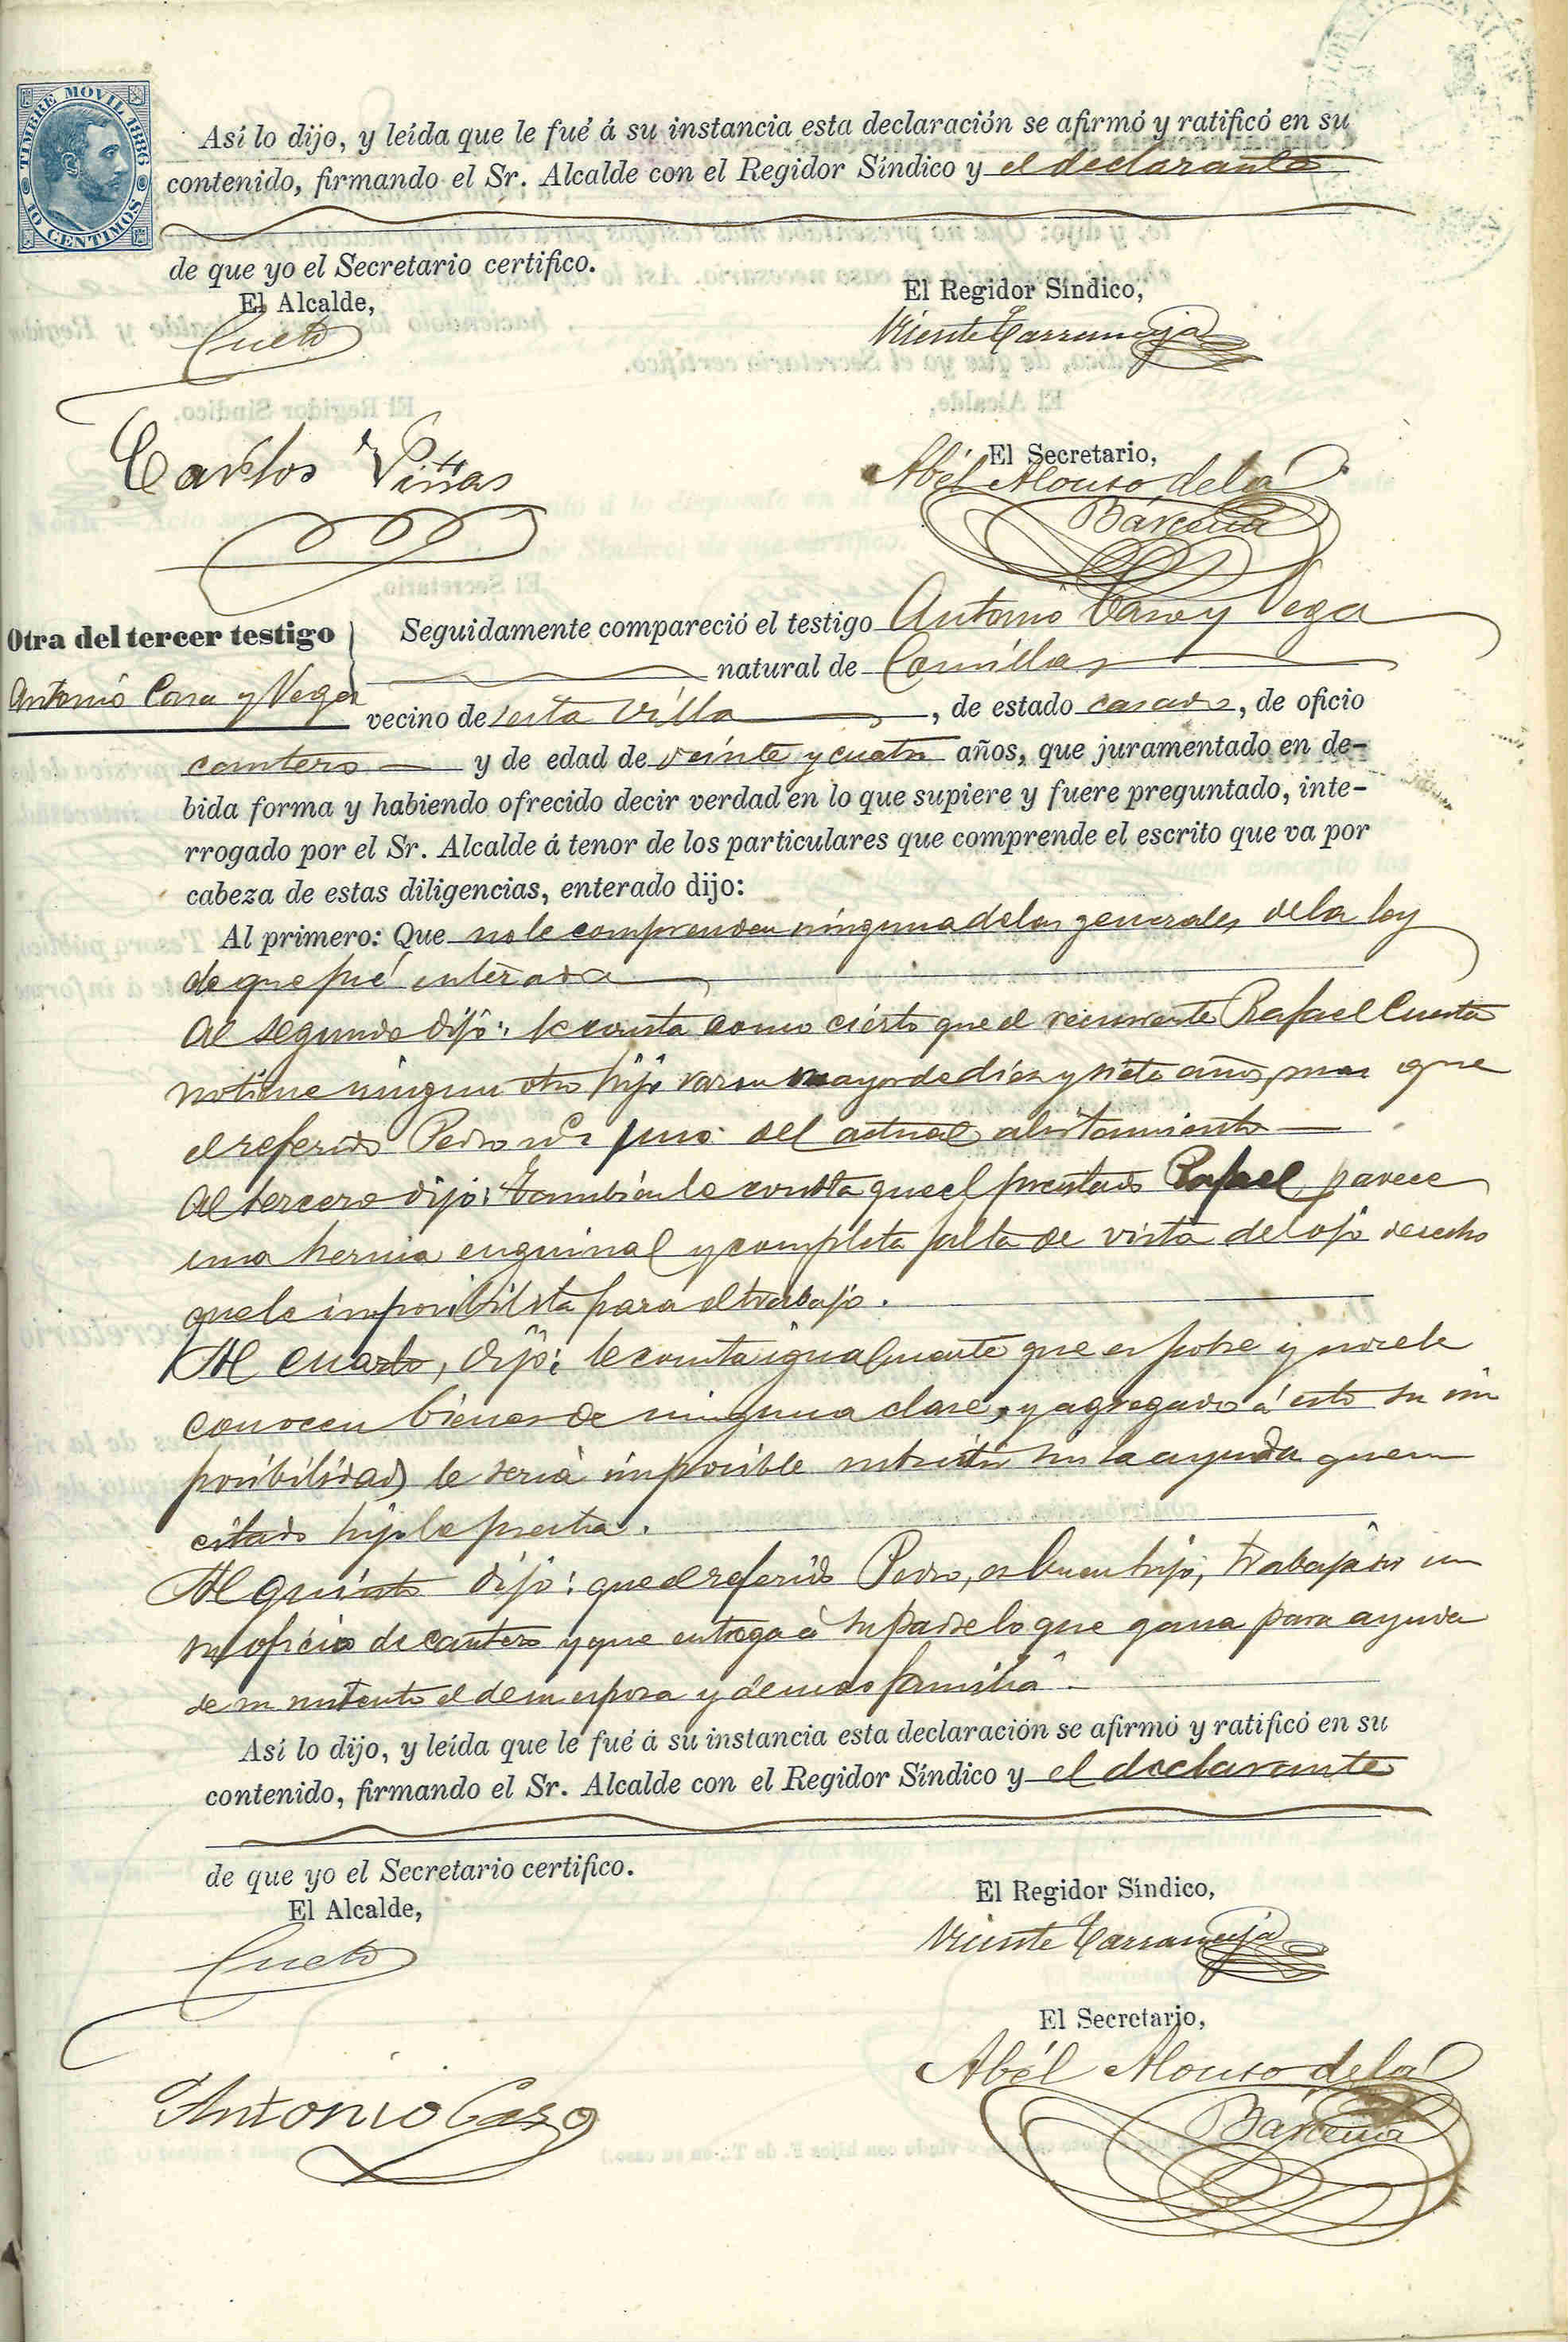 TIMBRE MOVIL 1886
10 CENTIMOS
Así lo dijo, y leída que le fué á su instancia esta declaración se afirmó y ratificó en su
contenido, firmando el Sr. Alcalde con el Regidor Síndico y el declarante
de que yo el Secretario certifico.
El Alcalde,
El Regidor Síndico,
Cueto
Vicente
Carlos Viñas
El Secretario,
Abél Alonso de la
Bárcena
Otra del tercer testigo
Antonio Caso y Vega
Seguidamente compareció el testigo Antonio Caso y Vega
natural de Comillas
vecino de esta Villa, de estado casado, de oficio
cantero y de edad de veinte y cuatro años, que juramentado en de-
bida forma y habiendo ofrecido decir verdad en lo que supiere y fuere preguntado, inte-
rrogado por el Sr. Alcalde á tenor de los particulares que comprende el escrito que va por
cabeza de estas diligencias, enterado dijo:
Al primero: Que no le comprenden ninguna de las generales de la ley
de que fué enterado
Al segundo dijo: le consta como cierto que el recurrente Rafael Cuesta
no tiene ningun otro hijo varon mayor de diez y siete años, mas que
el referido Pedro nº 1 uno del actual alistamiento
Al tercero dijo: Tambien le consta que el precitado Rafael padece
una hernia enguinal y completa falta de vista del ojo derecho
que le imposibilita para el trabajo.
Al cuarto, dijo: le consta igualmente que es pobre y no se le
conocen bienes de ninguna clase, y agregado á esto su im
posibilidad le seria imposible subsistir sin la ayuda que su
citado hijo le presta.
Al quinto dijo: que el referido Pedro, es buen hijo, trabaja en
su oficio de cantero y que entrega á su padre lo que gana para ayuda
de su sustento el de su esposa y demas familia.
Así lo dijo, y leída que le fué á su instancia esta declaración se afirmó y ratificó en su
contenido, firmando el Sr. Alcalde con el Regidor Síndico y el declarante
de que yo el Secretario certifico.
El Alcalde,
El Regidor Síndico,
Cueto
Vicente
El Secretario,
Abél Alonso de la
Bárcena
Antonio Caso